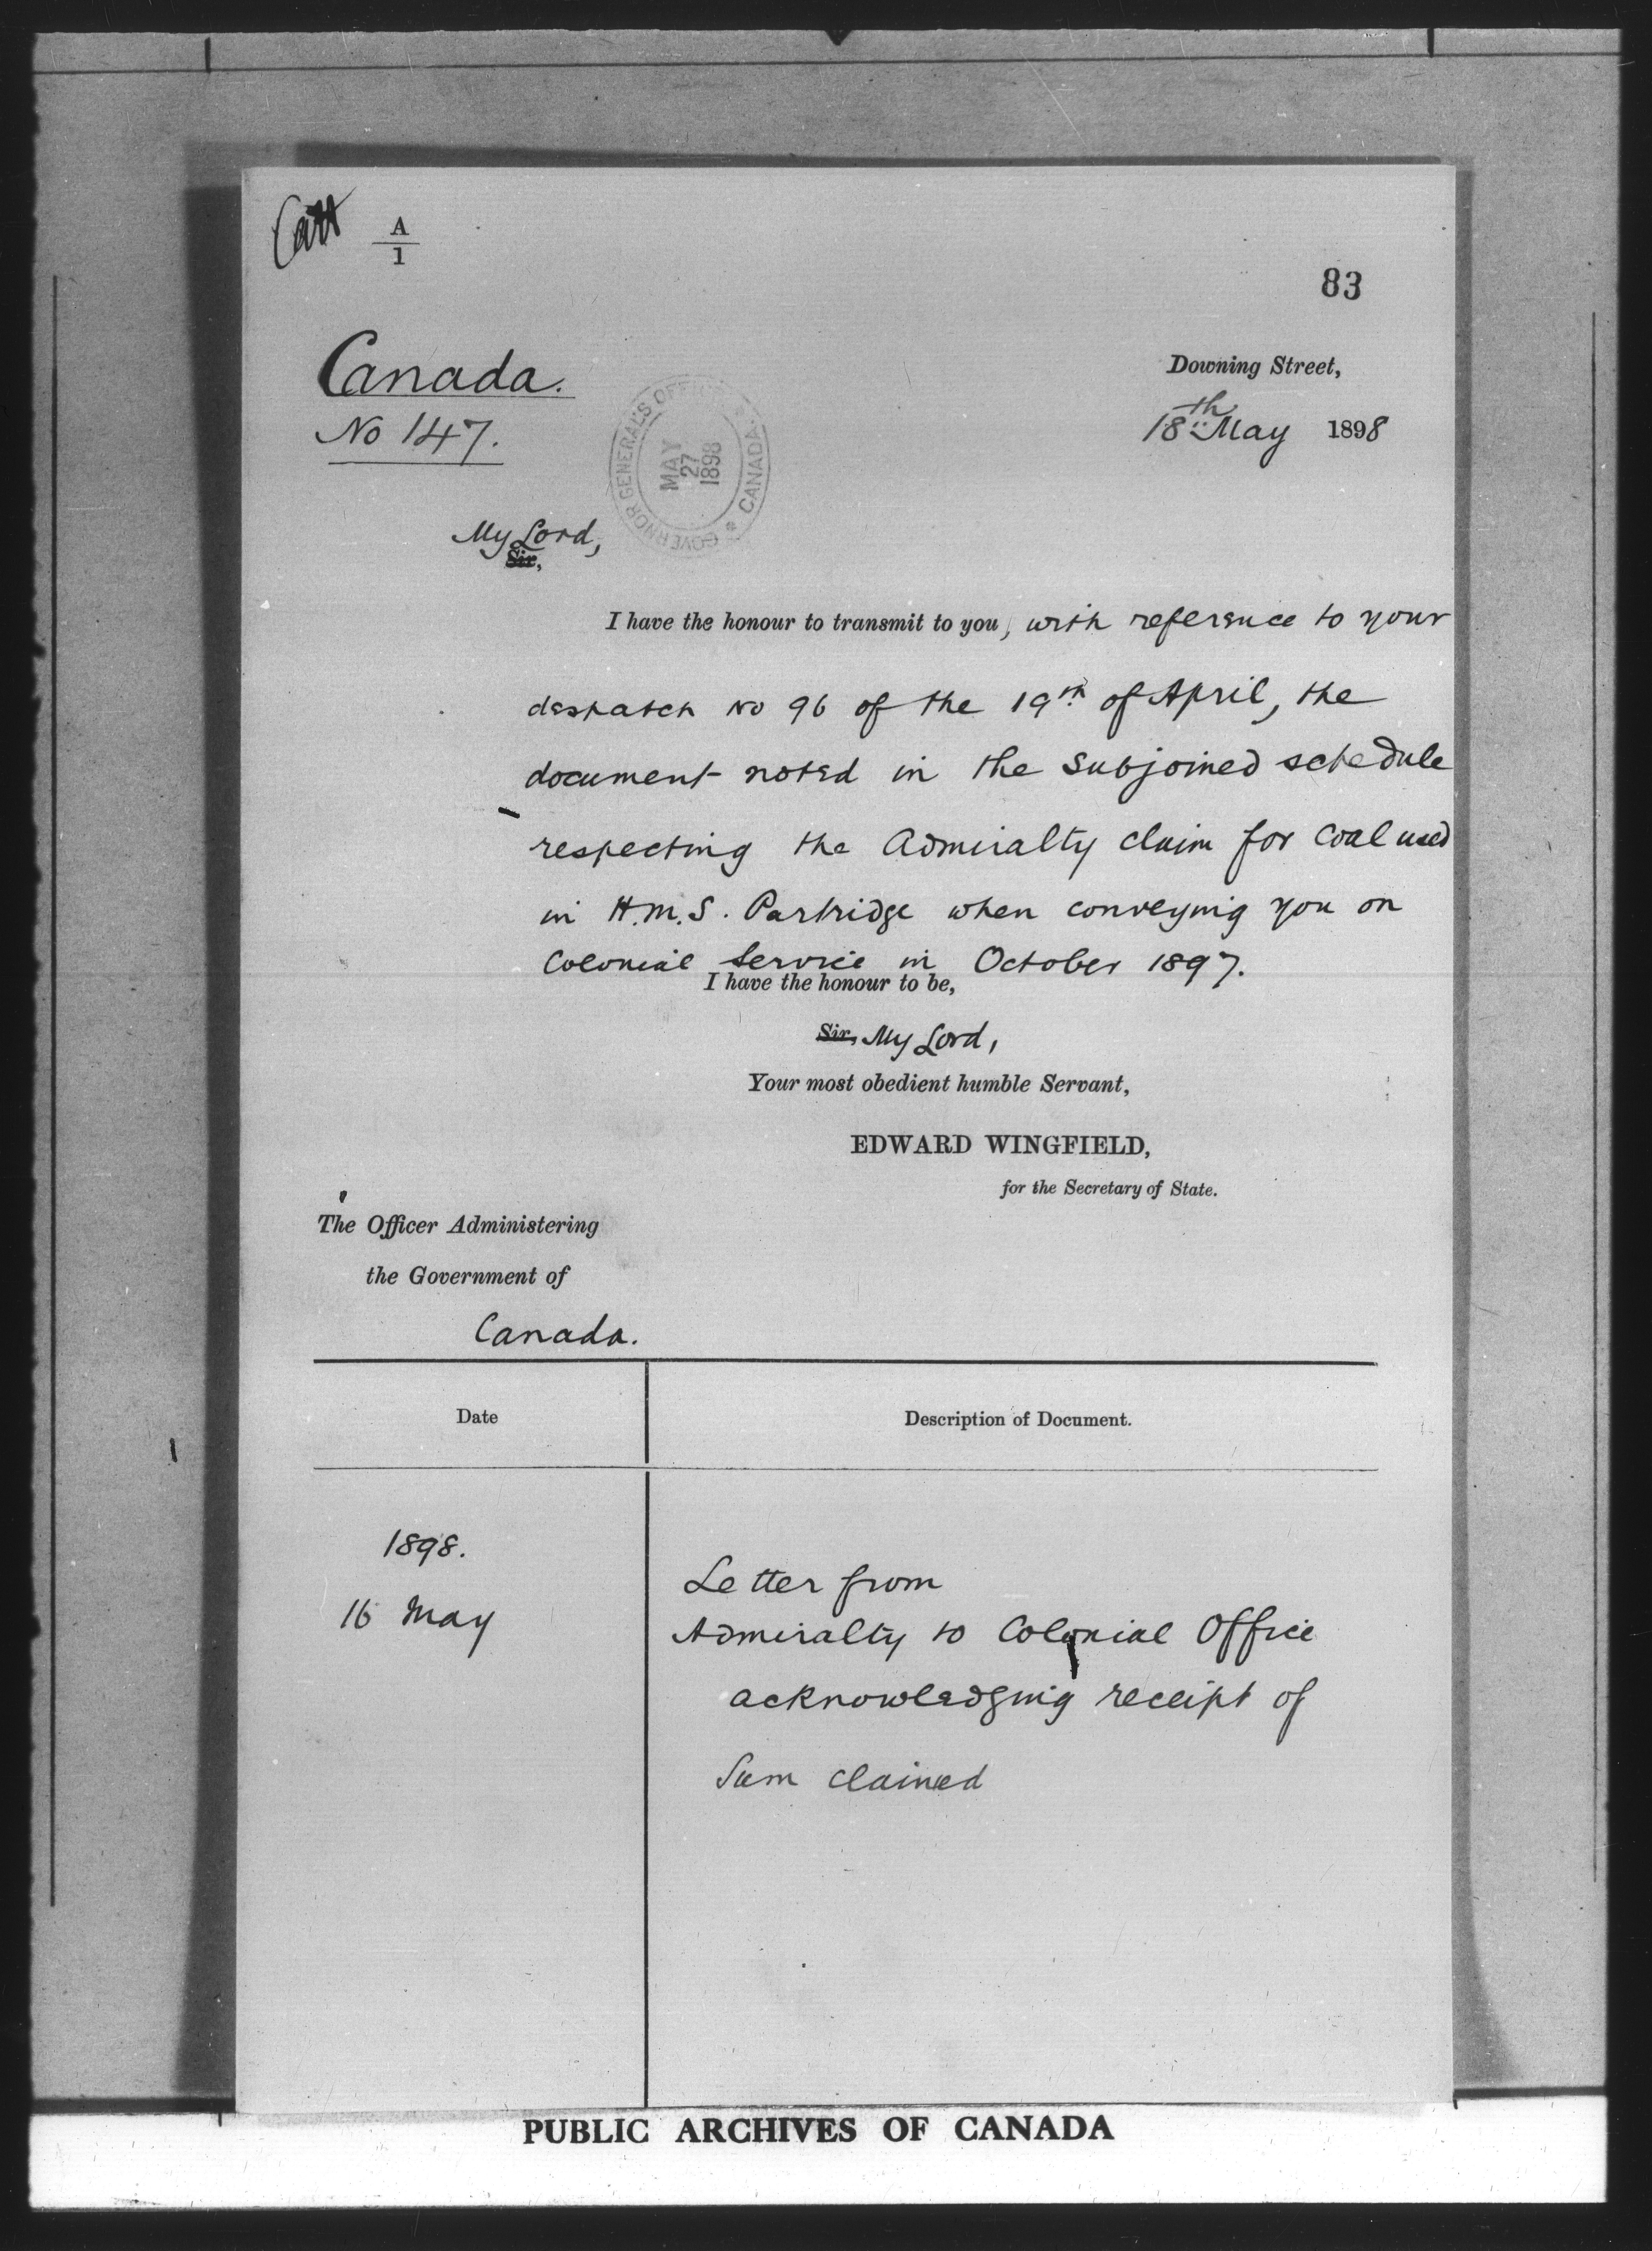 A
1
83
Canada.
No 147.
Downing Street,
18th May 1898
GOVERNOR GENERAL'S OFFICE
* CANADA *
MAY
27
1898
My Lord,
Sir,
I have the honour to transmit to you, with reference to your
despatch No 96 of the 19th of April, the
document noted in the subjoined schedule
respecting the Admiralty claim for coal used
in H.M.S. Partridge when conveying you on
Colonial Service in October 1897.
I have the honour to be,
Sir, My Lord,
Your most obedient humble Servant,
EDWARD WINGFIELD,
for the Secretary of State.
The Officer Administering
the Government of
Canada.
Date
Description of Document.
1898.
16 May
Letter from
Admiralty to Colonial Office
acknowledging receipt of
Sum claimed
PUBLIC ARCHIVES OF CANADA